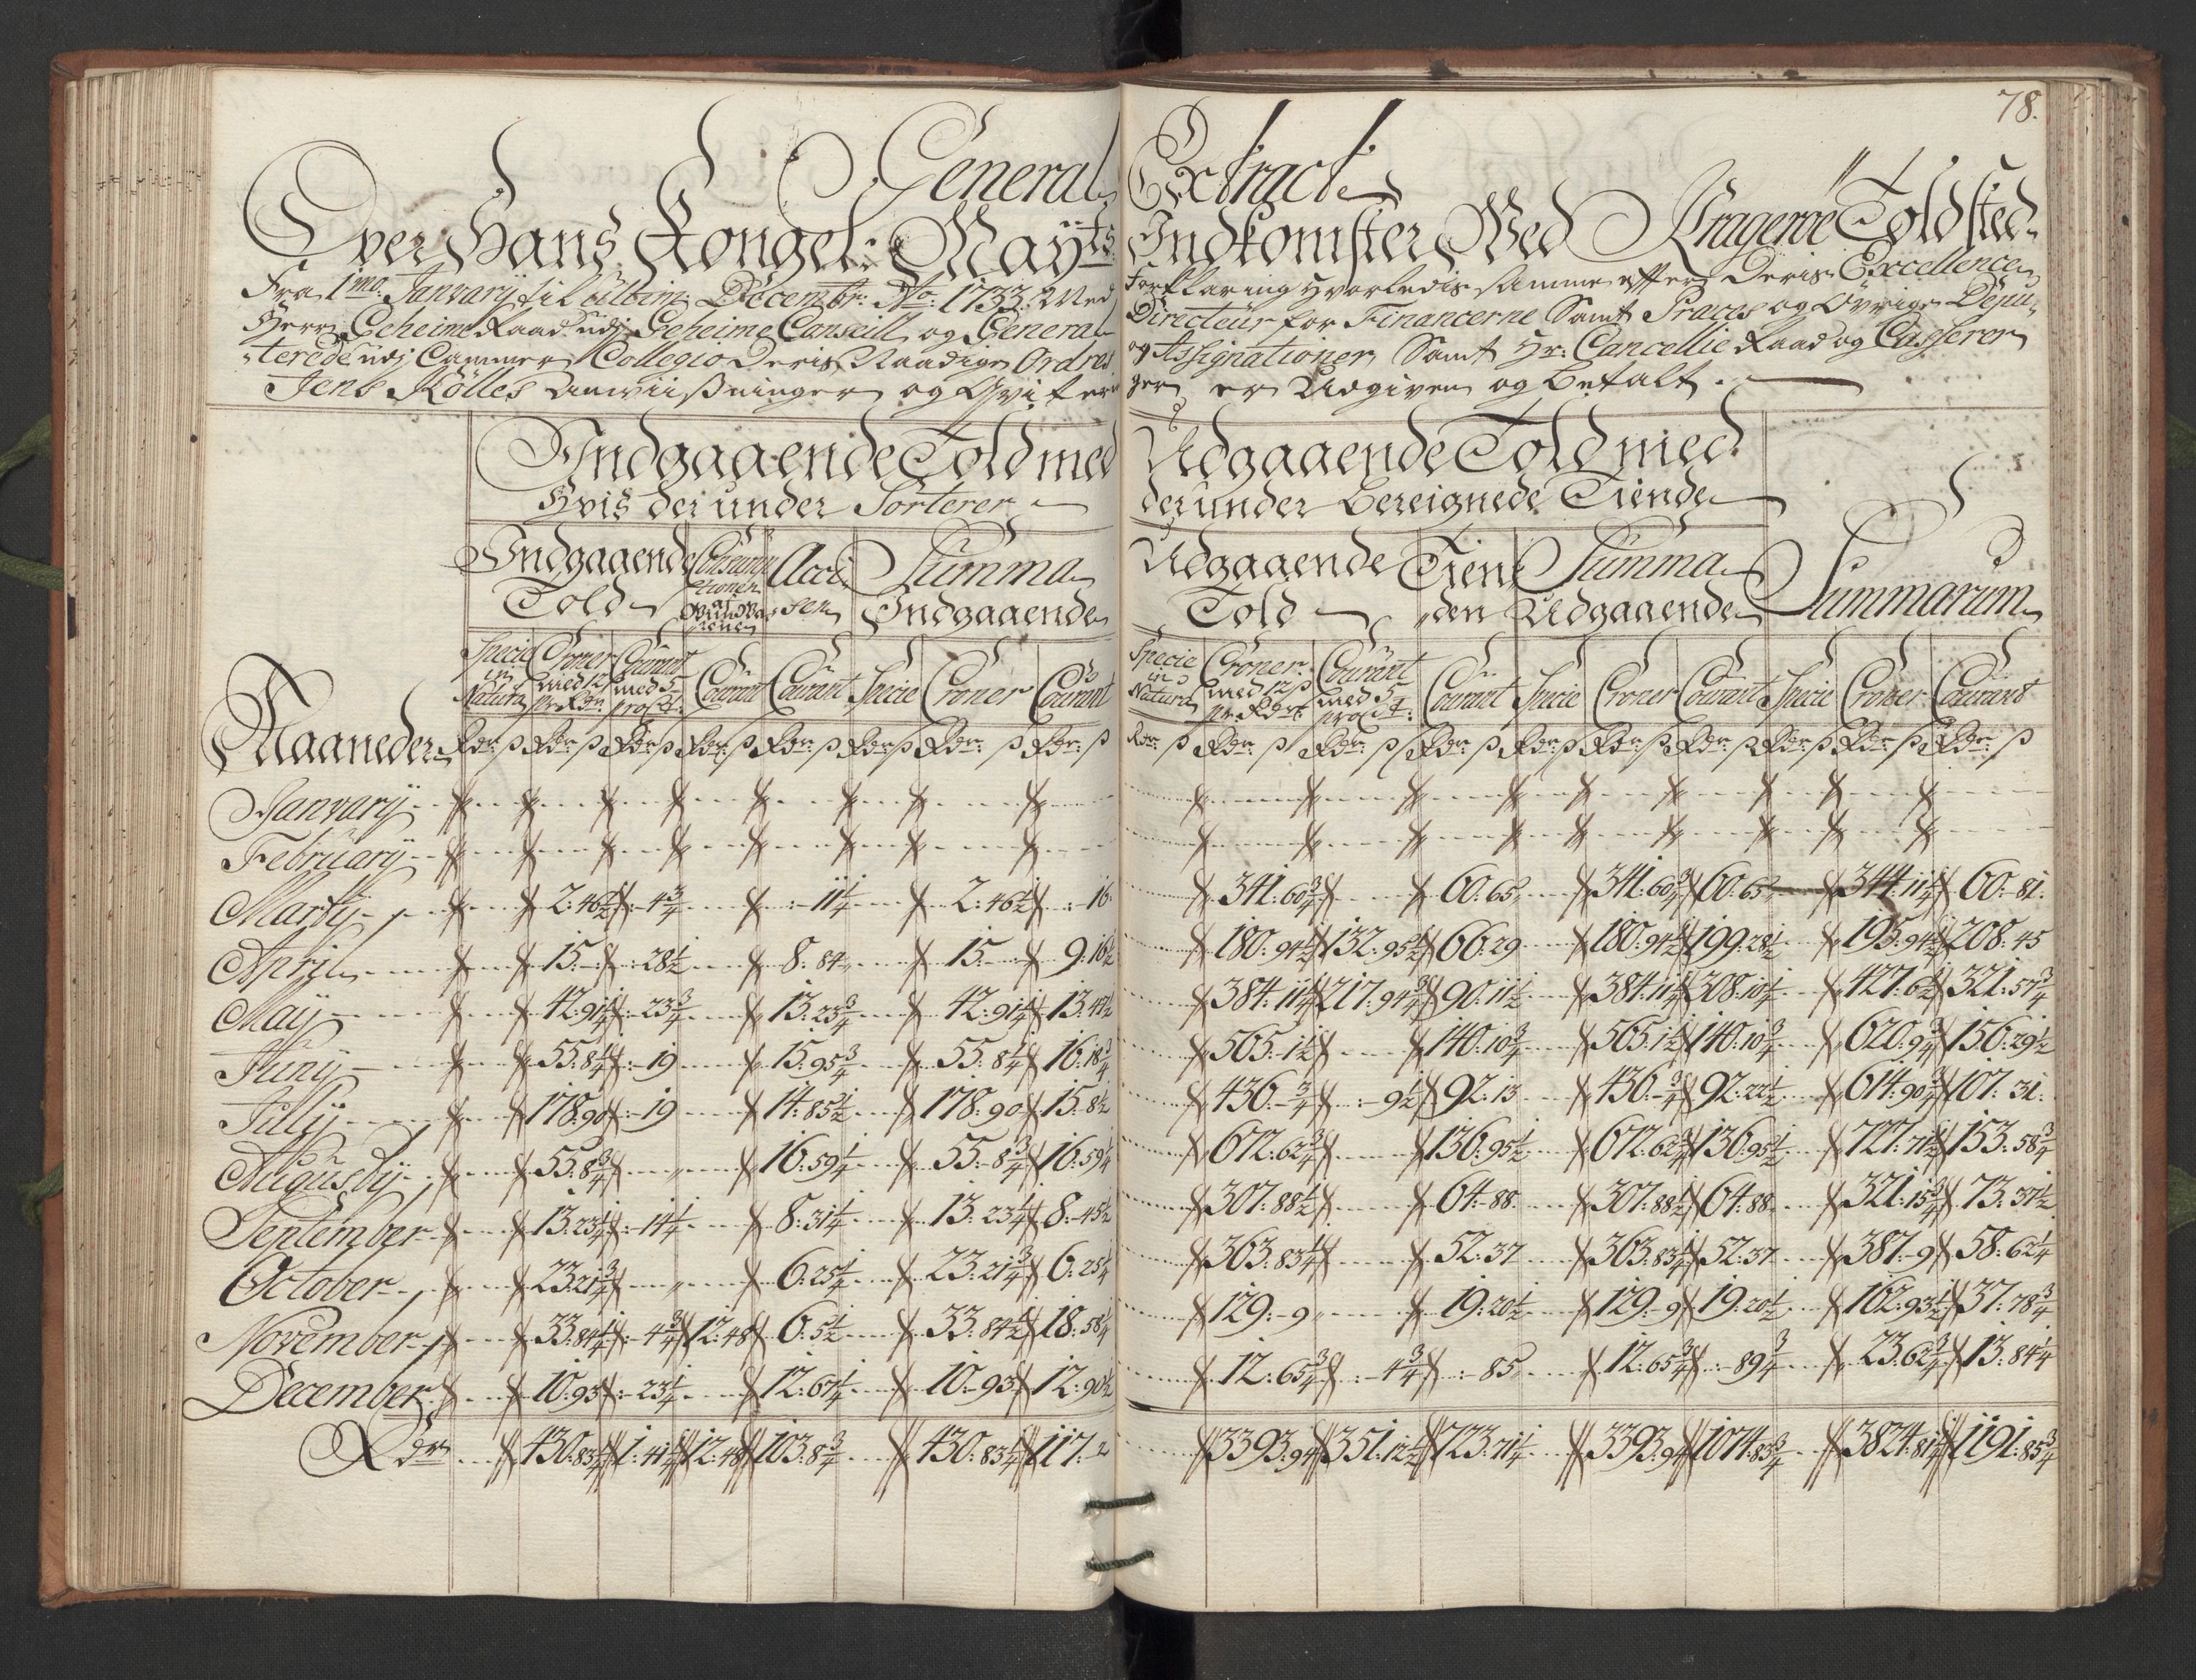 78.
General Extract
Over Hans Kongel: Mayts: Indkomster Ved Kragerøe Toldsted
Fra 1mo: Janvarij til ultim: Decembr: Ao: 1733. Med Forklaring Hvorledis samme effter Deris Excellence
Herr Geheime Raad udj Geheime Conseill og General Directeür for Financerne Samt Præces og Øvrige Depu-
terede udj Cammer Collegio Deris Naadige Ordres og Assignationer, Samt Hr: Cancellie Raad og Casserer
Jens Kölles Anviisninger og Qvitteringer er Udgiven og betalt.
Indgaaende Told med Udgaaende Told med
Hvis der under Sorterer der under Bereignede Tiende
Indgaaende Told Consumptionen af Accisen Summa Indgaaende Udgaaende Told Tienden Summa Udgaaende Summarum
Maaneder
Specie in Natura Croner med 12 ß pr. Rdr: Courant med 5 pro Ct: Courant Courant Specie Croner Courant Specie in Natura Croner med 12 ß pr. Rdr: Courant med 5 pro Ct: Courant Specie Croner Courant Specie Croner Courant
Rdr: ß Rdr: ß Rdr: ß Rdr: ß Rdr: ß Rdr: ß Rdr: ß Rdr: ß Rdr: ß Rdr: ß Rdr: ß Rdr: ß Rdr: ß Rdr: ß Rdr: ß Rdr: ß Rdr: ß Rdr: ß
Janvarij
Februarij
Martij 2:46½ :-4¾ :-11¼ 2:46½ :16. 341:60¾ 60:65 341:60¾ 60:65 344:11¼ 60:81.
April 15:- :28½ 8:84 15:- 9:16½ 180:94½ 132:95½ 66:29 180:94½ 199:28½ 195:94½ 208:45
Maij 42:91¼ :-23¾ 13:23¾ 42:91¼ 13:47½ 384:11¼ 217:94¾ 90:11½ 384:11¼ 308:10¼ 427:6½ 321:57¾
Junij 55:8¼ :-19 15:95¾ 55:8¼ 16:18¾ 565:1½ 140:10¾ 565:1½ 140:10¾ 620:9¾ 156:29½
Julij 178:90 :-19 14:85½ 178:90 15:8½ 436:-¾ :-9½ 92:13 436:-¾ 92:22½ 614:90¾ 107:31.
Augustij 55:8¾ 16:59¼ 55:-8¾ 16:59¼ 672:62¾ 136:95½ 672:62¾ 136:95½ 727:71½ 153:58¾
September 13:23¼ :-14¼ 8:31¼ 13:23¼ 8:-45½ 307:88½ 64:88 307:88½ 64:88 321:15¾ 73:37½
October 23:21¾ 6:25¼ 23:21¾ 6:25¼ 363:83¼ 52:37 363:83¼ 52:37 387:-9 58:62¼
November 33:84½ :-4¾ 12:48 6:5½ 33:84½ 18:58¼ 129:-9 19:20½ 129:-9 19:20½ 162:93½ 37:78¾
December 10:93 :-23¼ 12:67¼ 10:-93 12:90½ 12:65¾ :-4¾ :-85 12:65¾ :-89¾ 23:62¾ 13:84¼
Rdr 430:83¼ 1:41¼ 12:48 103:8¾ 430:83¼ 117:2 3393:94 351:12½ 723:71¼ 3393:94 1074:83¾ 3824:81¼ 1191:85¾